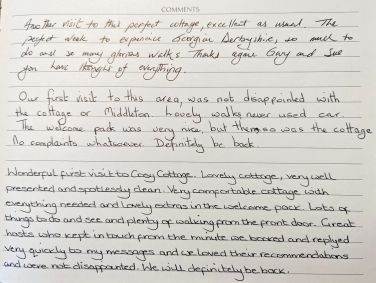 COMMENTS
Another visit to this perfect cottage, excellent as usual. The
perfect week to experience Georgian Derbyshire, so much to
do and so many glorious walks. Thanks again Gary and Sue
you have thought of everything.
Our first visit to this area, was not disappointed with
the cottage or Middleton. Lovely walks never used car.
The welcome pack was very nice, but then so was the cottage
No complaints whatsoever. Definitely be back.
Wonderful first visit to Cosy Cottage. Lovely cottage, very well
presented and spotlessly clean. Very comfortable cottage with
everything needed and lovely extras in the welcome pack. Lots of
things to do and see and plenty of walking from the front door. Great
hosts who kept in touch from the minute we booked and replyed
very quickly to my messages and we loved their recommendations
and were not disappointed. We will definitely be back.